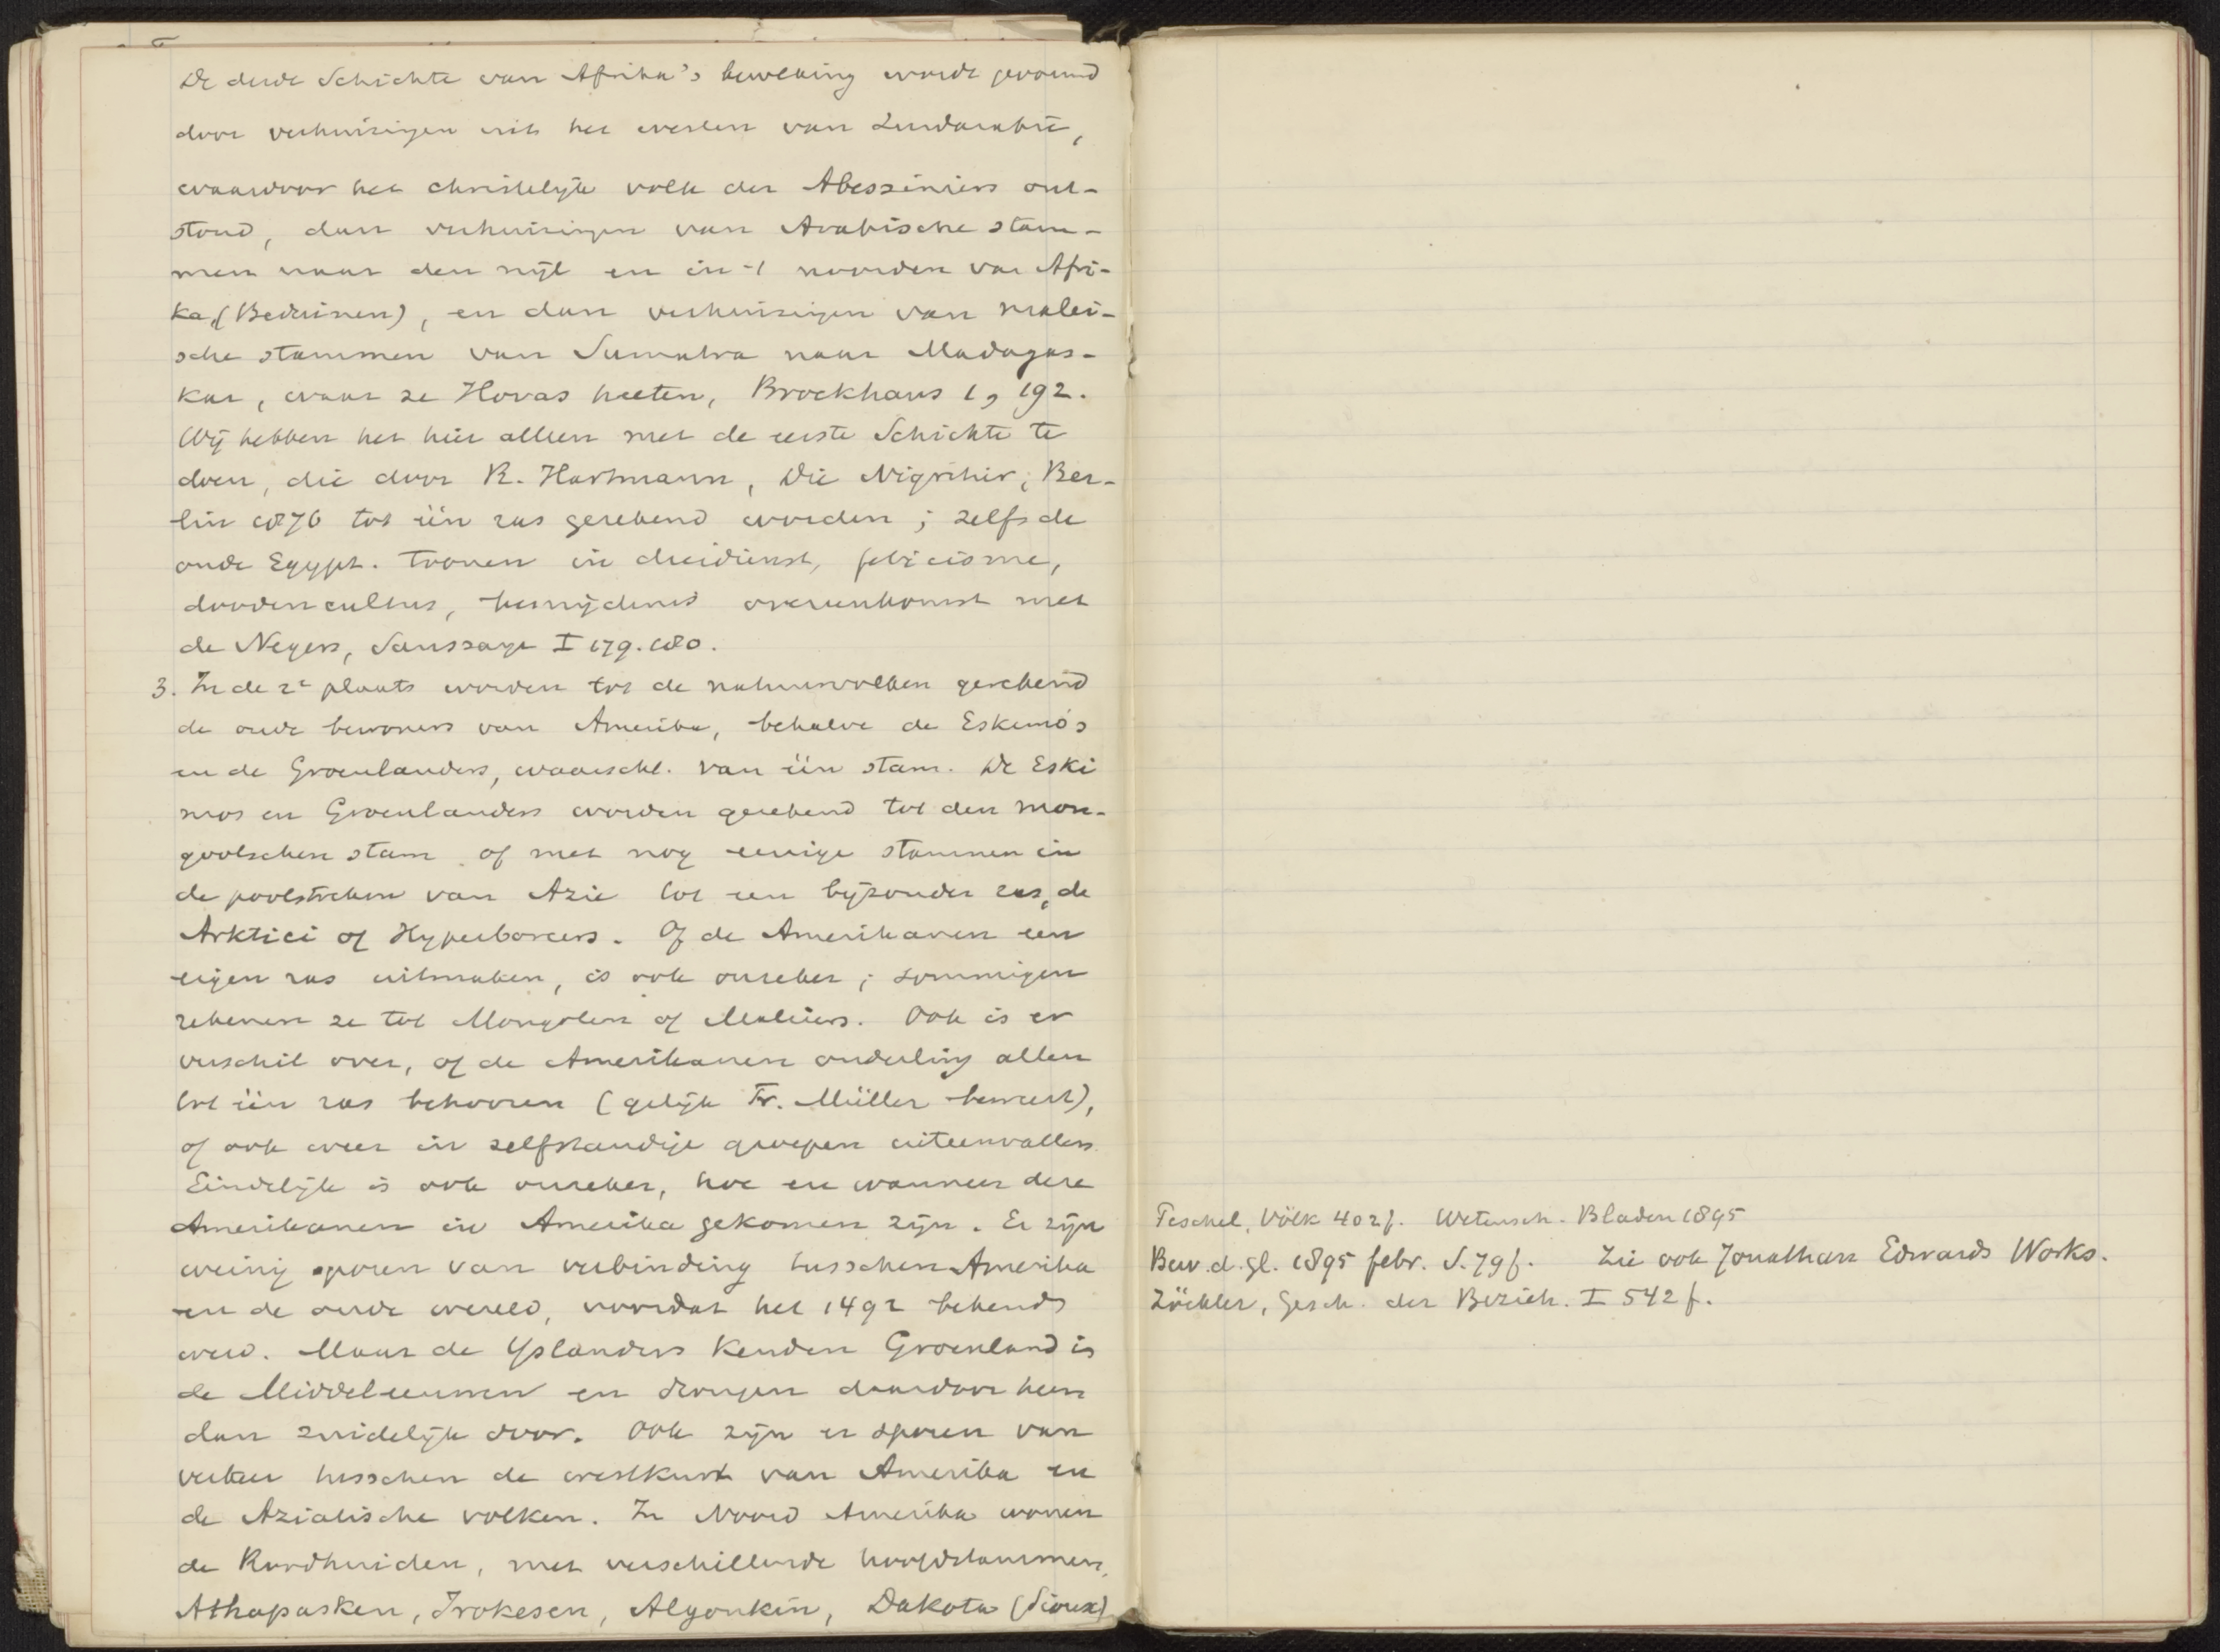 De derde Schichte van Afrika's bevolking wordt gevormd
door verhuizingen uit het westen van Zuidarabië,
waardoor het christelijke volk der Abessiniërs ont-
stond, dan verhuizingen van Arabische stam-
men naar den nijl en in 't noorden van Afri-
ka, (Beduinen), en dan verhuizingen van malei-
sche stammen van Sumatra naar Madagas-
kar, waar ze Hovas heeten, Brockhaus 1, 192.
Wij hebben het hier alleen met de eerste Schichte te
doen, die door R. Hartmann, Die Nigritier, Ber-
lin 1876 tot één ras gerekend worden; zelfs de
oude Egypt. toonen in dierdienst, feticisme,
doodencultus, besnijdenis overeenkomst met
de Negers, Saussaye I 179.180.
3. In de 2e plaats worden tot de natuurvolken gerekend
de oude bewoners van Amerika, behalve de Eskimo's
en de Groenlanders, waarschl. van één stam. De Eski
mos en Groenlanders worden gerekend tot den mon-
goolschen stam of met nog eenige stammen in
de poolstreken van Azie tot een bijzonder ras, de
Arktici of Hyperboreers. Of de Amerikanen een
eigen ras uitmaken, is ook onzeker; sommigen
rekenen ze tot Mongolen of Maleiers. Ook is er
verschil over, of de Amerikanen onderling allen
tot één ras behooren (gelijk Fr. Müller beweert),
of ook weer in zelfstandige groepen uiteenvallen.
Eindelijk is ook onzeker, hoe en wanneer deze
Amerikanen in Amerika gekomen zijn. Er zijn
weinig sporen van verbinding tusschen Amerika
en de oude wereld, voordat het 1492 bekend
werd. Maar de Yslanders kenden Groenland in
de Middeleeuwen en drongen daardoor heen
dan zuidelijk door. Ook zijn er sporen van
verkeer tusschen de westkust van Amerika en
de Aziatische volken. In Noord Amerika wonen
de Roodhuiden, met verschillende hoofdstammen,
Athapasken, Irokesen, Algonkin, Dakota (Sioux)
Peschel, Völk 402f. Wetensch. Bladen 1895
Bew. d. gl. 1895 febr. S. 79f. Zie ook Jonathan Edwards Works.
Zöckler, Gesch. der Bezieh. I 542 f.